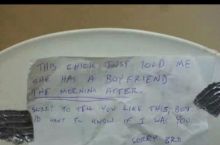 THIS CHICK JUST TOLD ME
SHE HAS A BOYFRIEND
THE MORNING AFTER.
SORRY TO TELL YOU LIKE THIS, BUT
I'D WANT TO KNOW IF I WAS YOU
SORRY BRO